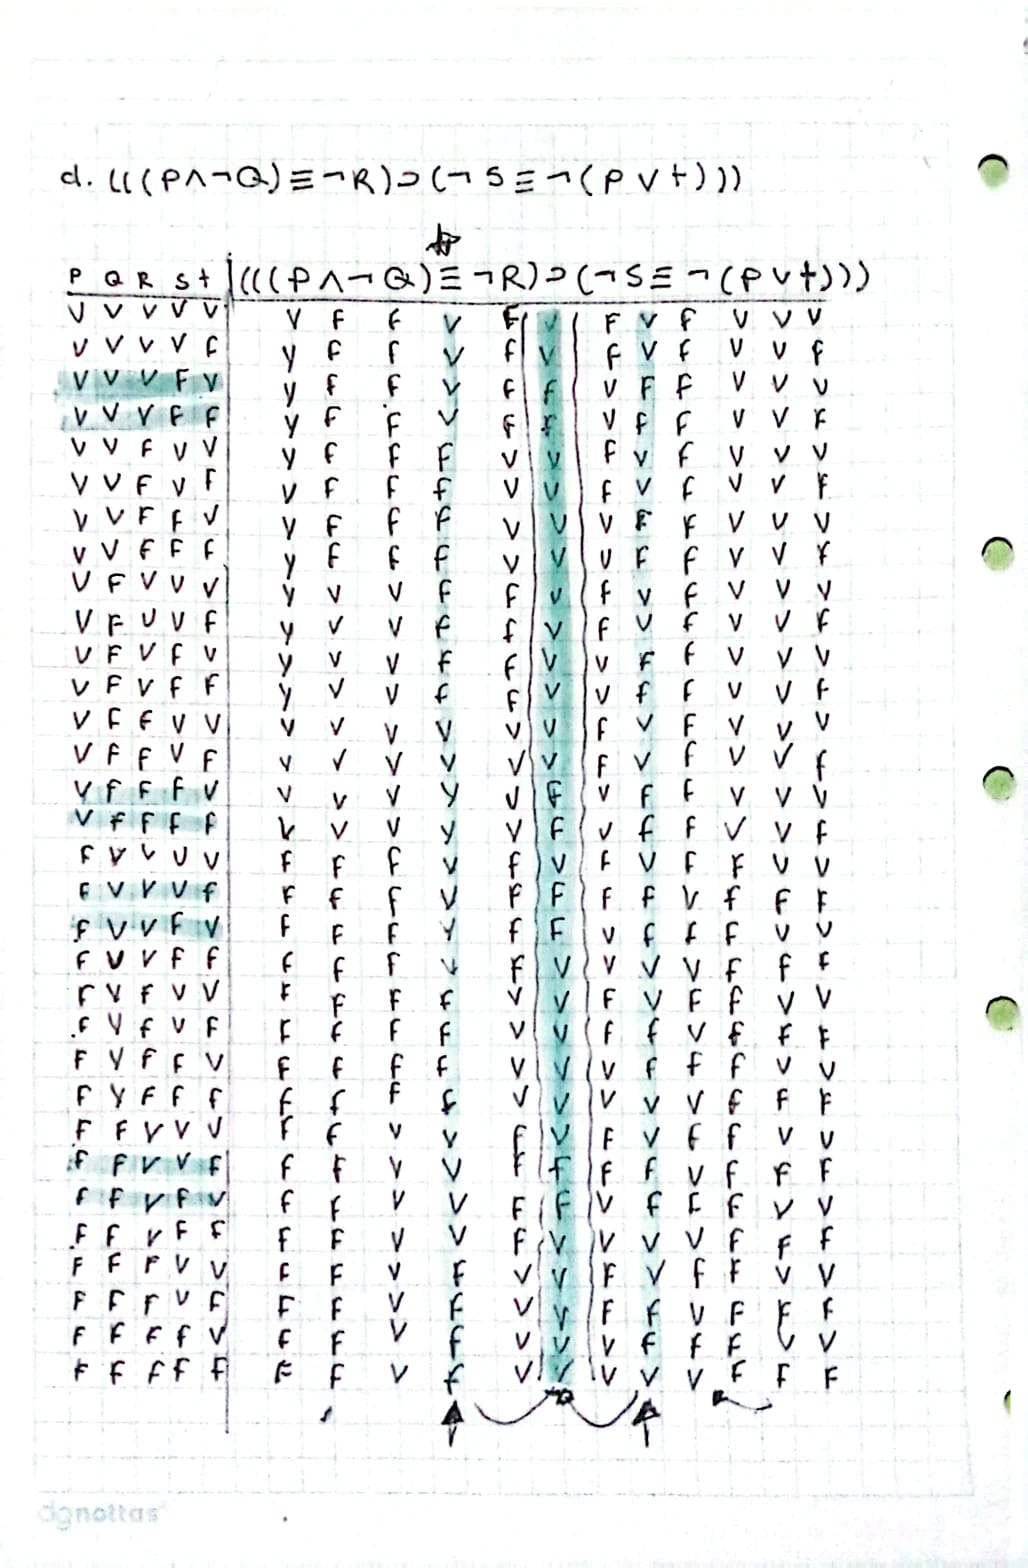 d. (((P∧¬Q)≡¬R)⊃(¬S≡¬(P∨t)))
P Q R S t (((P∧¬Q)≡¬R)⊃(¬S≡¬(P∨t)))
V V V V V V F F V F V F V F V V V
V V V V F V F F V F V F V F V V F
V V V F V V F F V F F V F F V V V
V V V F F V F F V F F V F F V V F
V V F V V V F F F V V F V F V V V
V V F V F V F F F V V F V F V V F
V V F F V V F F F V V V F F V V V
V V F F F V F F F V V V F F V V F
V F V V V V V V F F V F V F V V V
V F V V F V V V F F V F V F V V F
V F V F V V V V F F V V F F V V V
V F V F F V V V F F V V F F V V F
V F F V V V V V V V V F V F V V V
V F F V F V V V V V V F V F V V F
V F F F V V V V V V F V F F V V V
V F F F F V V V V V F V F F V V F
F V V V V F F F V F V F V F F V V
F V V V F F F F V F F F F V F F F
F V V F V F F F V F F V F F F V V
F V V F F F F F V F V V V V F F F
F V F V V F F F F V V F V F F V V
F V F V F F F F F V V F F V F F F
F V F F V F F F F V V V F F F V V
F V F F F F F F F V V V V V F F F
F F V V V F F V V F V F V F F V V
F F V V F F F V V F F F F V F F F
F F V F V F F V V F F V F F F V V
F F V F F F F V V F V V V V F F F
F F F V V F F V F V V F V F F V V
F F F V F F F V F V V F F V F F F
F F F F V F F V F V V V F F F V V
F F F F F F F V F V V V V V F F F
dgnottas